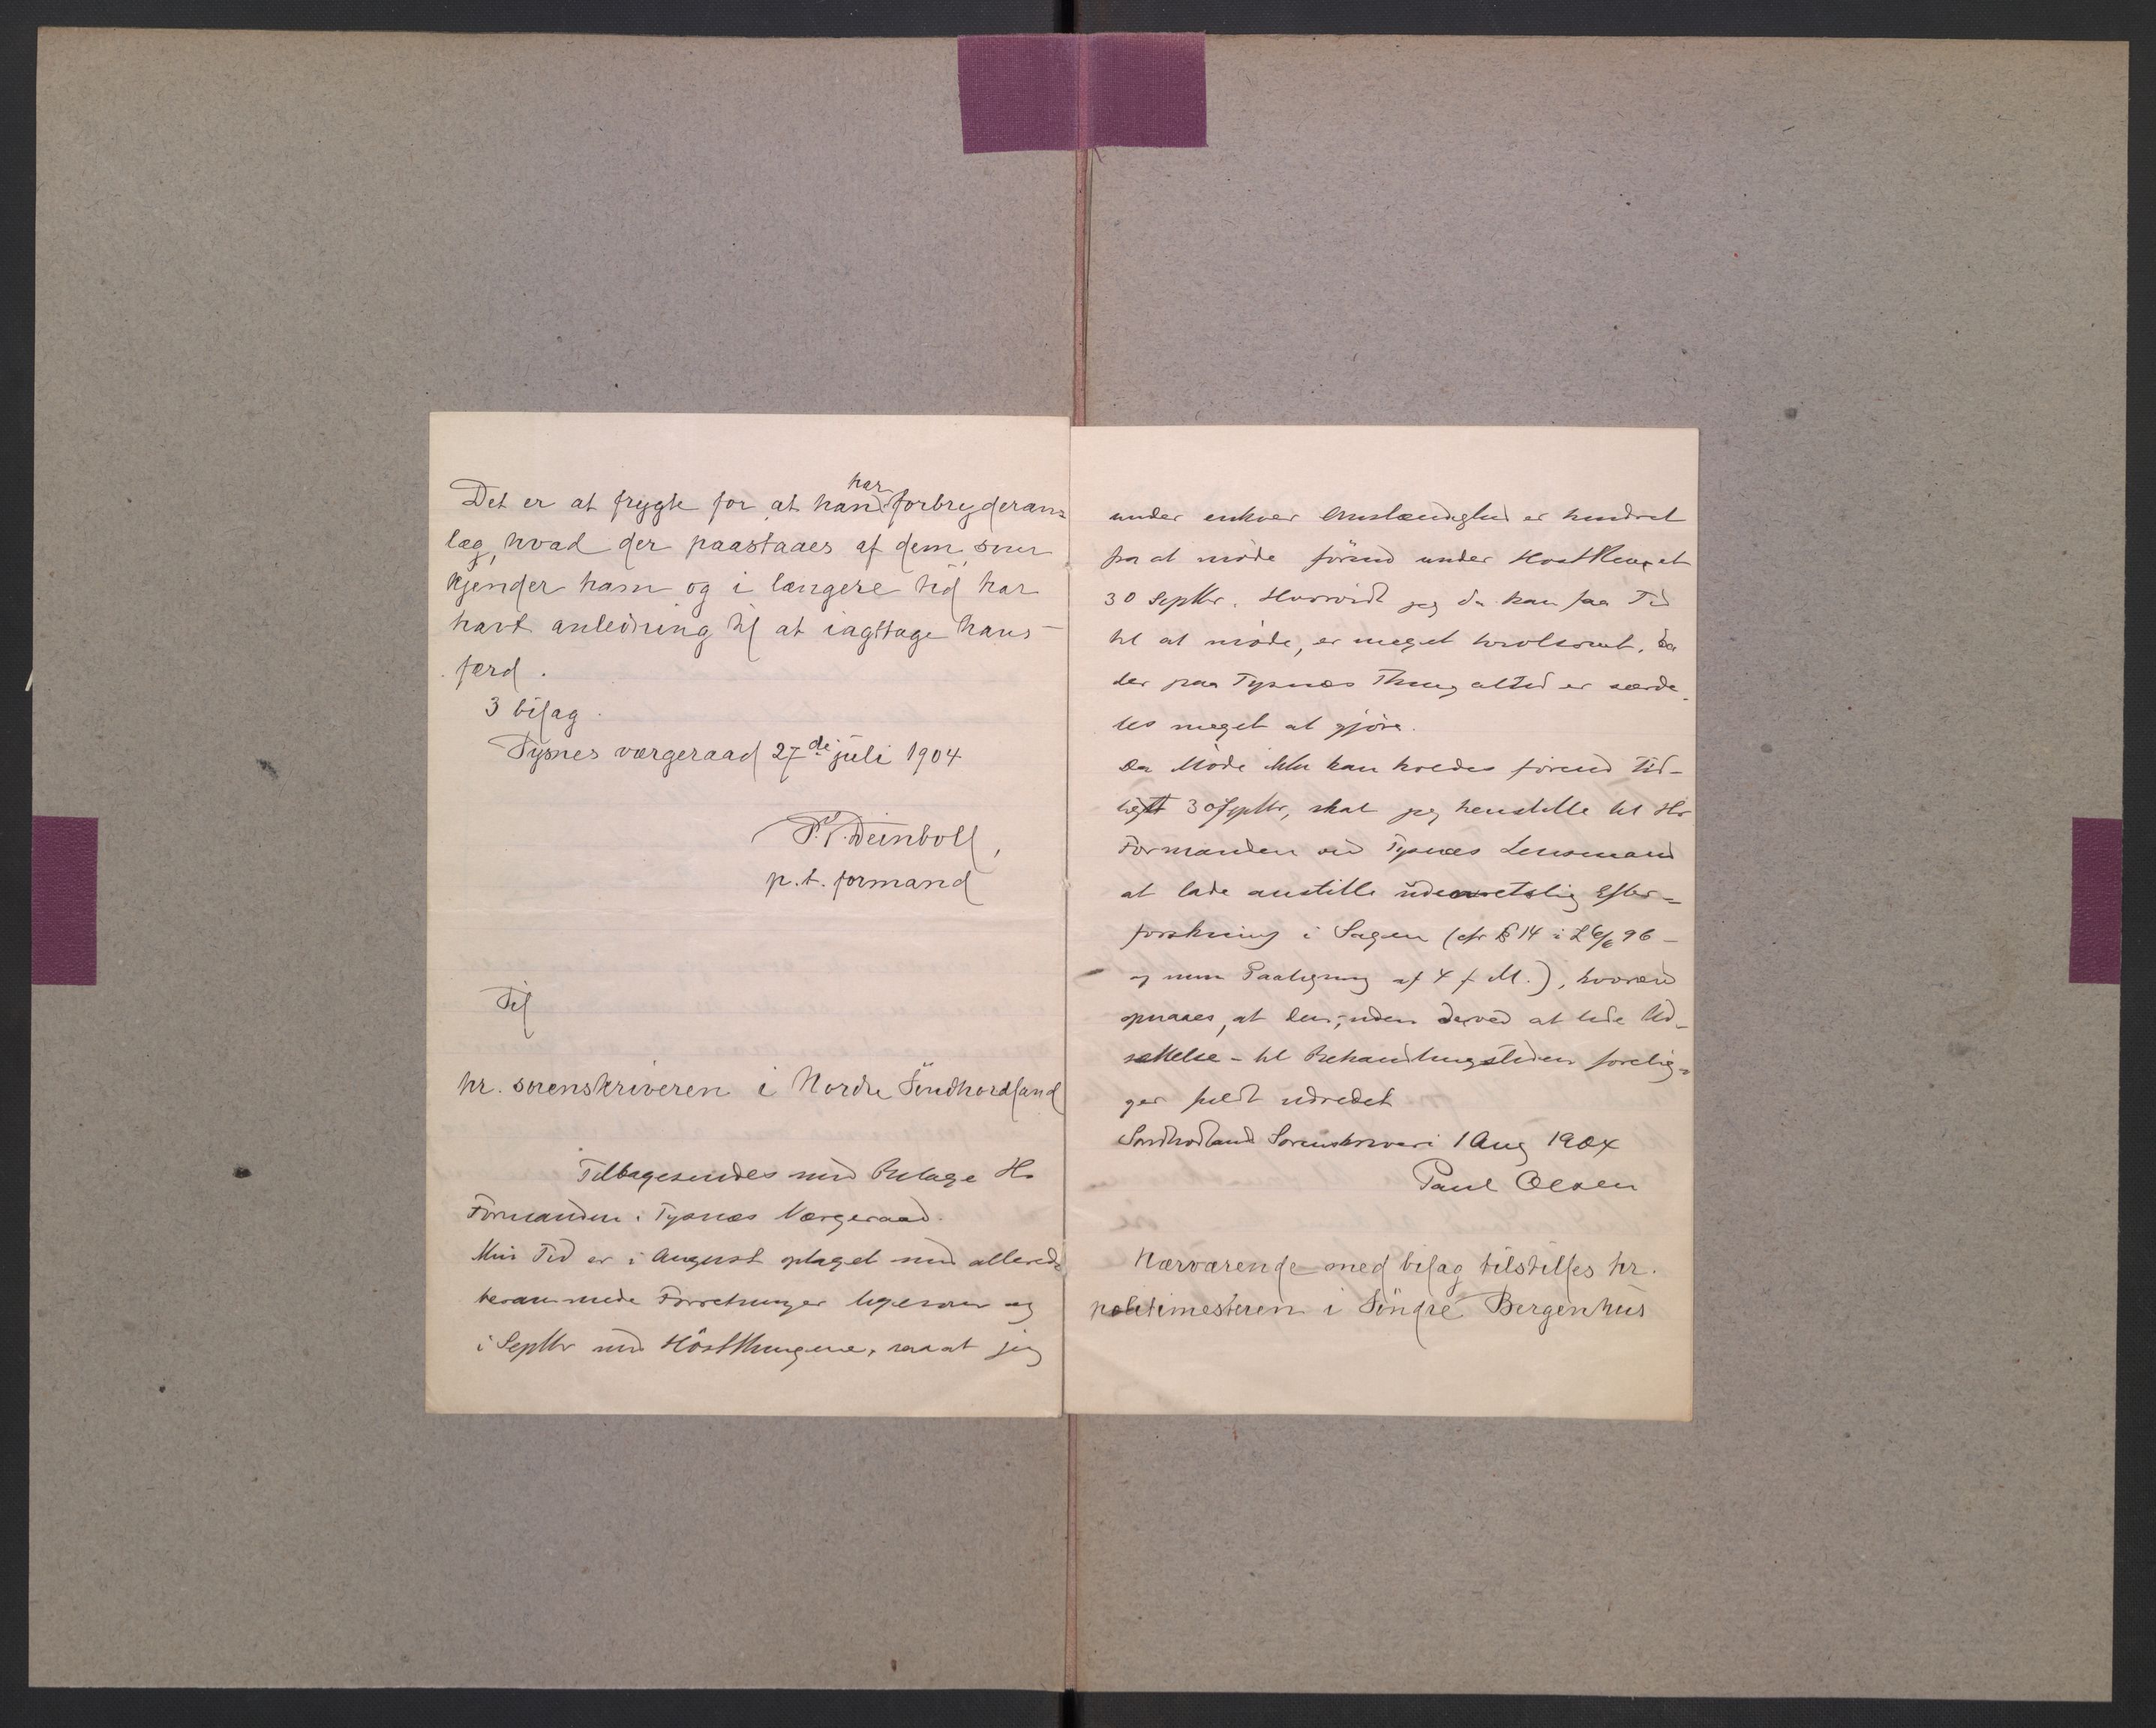 Det er at frygte for at han har forbryderan=
læg, hvad der paastaaes af dem, som
kjender ham og i længere tid har
havt anledning til at iagttage hans
færd.
3 bilag.
Tysnes værgeraad 27de juli 1904
P. T. Deinboll,
p.t. formand
Til
hr. sorenskriveren i Nordre Söndhordland
Tilbagesendes med Bilage Hr
Formanden i Tysnæs Værgeraad.
Min Tid er i August optaget med allerede
berammede Forretninger ligesom og
i Septbr med Höstthingene, saa at jeg
under enhver Omstændighed er hindret
fra at möde förend under Hostthinget
30 Septbr. Hvorvidt jeg da kan faa Tid
til at möde, er meget tvivlsomt, da
der paa Tysnæs Thing altid er særde-
les meget at gjöre.
Da Möde ikke kan holdes förend tid-
ligst 30 Septbr, skal jeg henstille til Hr
Formanden ved Tysnæs Lensmand
at lade anstille udenretslig Efter=
forskning i Sagen (cfr § 14 i L 6/6 96 –
og min Paategning af 4 f. M.), hvorved
opnaaes, at den, uden derved at lide Ud-
sættelse – til Behandlingstiden forelig=
ger fuldt udredet
Söndhordland Sorenskriveri 1 Aug 1904
Paul Olsen
Nærværende med bilag tilstilles hr.
politimesteren i Söndre Bergenhus